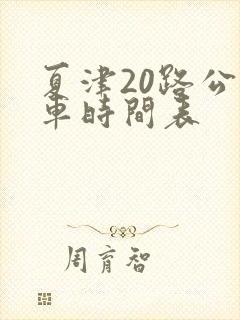 夏津20路公
車時間表
周育智